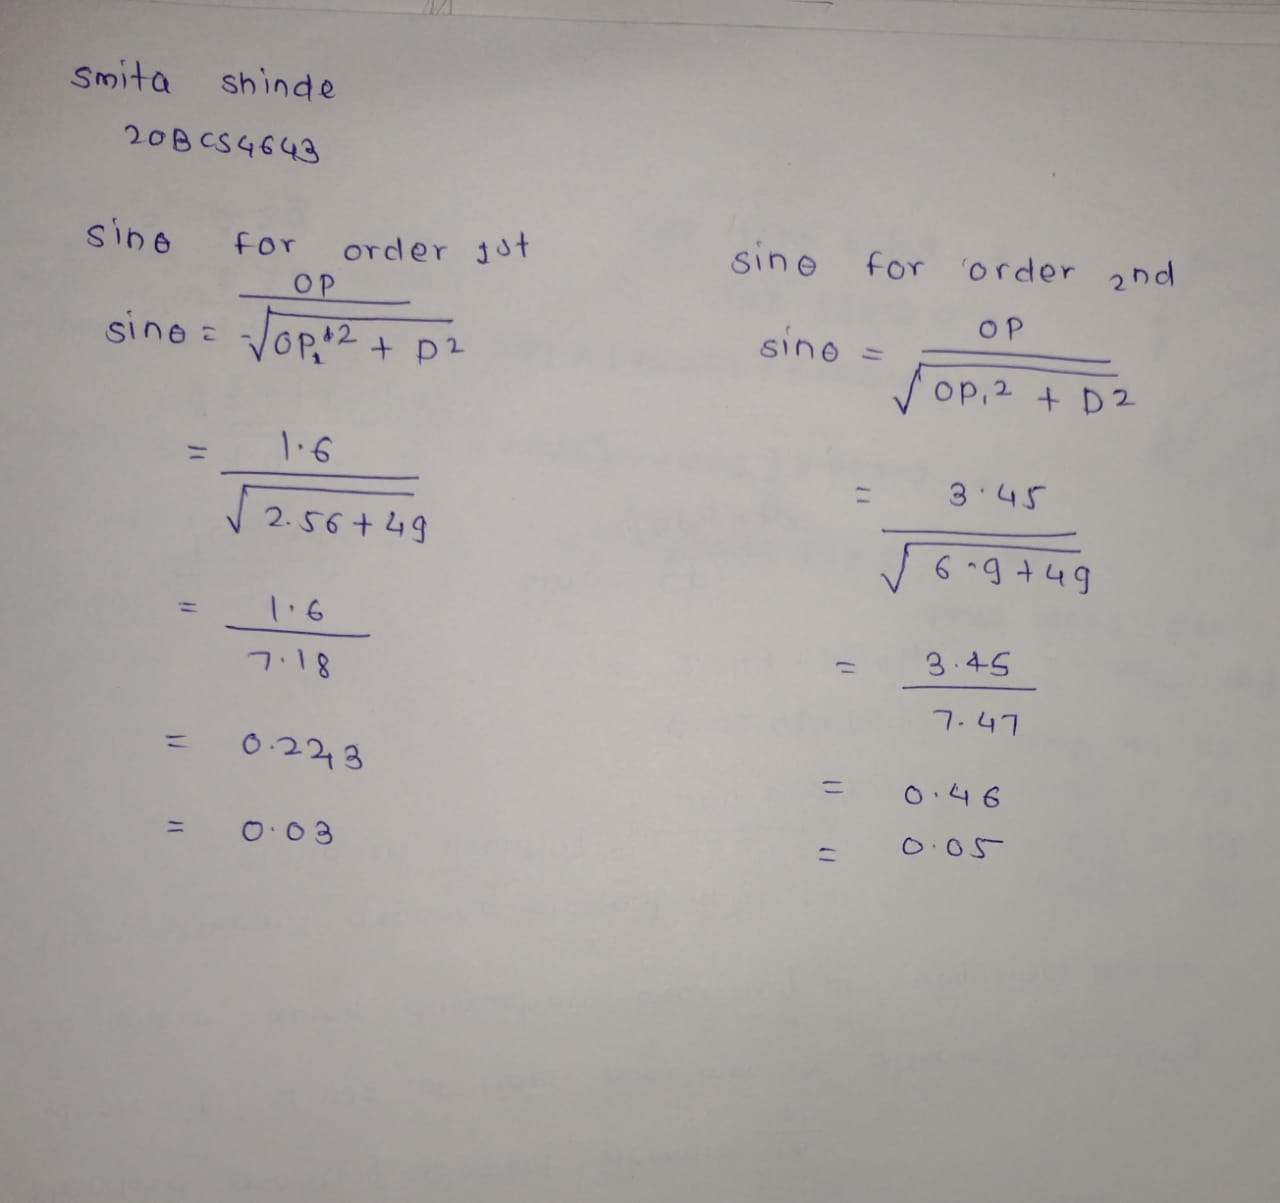 smita shinde
20BCS4643
sinθ for order 1st
OP
sinθ = √OP₁² + D²
= 1.6
√2.56 + 49
= 1.6
7.18
= 0.223
= 0.03
sinθ for order 2nd
OP
sinθ =
√OP₁² + D²
= 3.45
√6.9 + 49
= 3.45
7.47
= 0.46
= 0.05